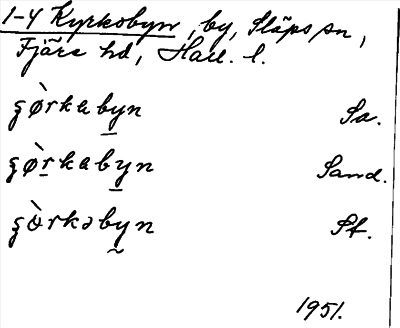 1-4 Kyrkobyn, by, Släps sn,
Fjäre hd, Hall. l.
şø̀rkabyn Sa.
şø̀rkabyn Sand.
şɵ̀rkəbyn St.
1951.